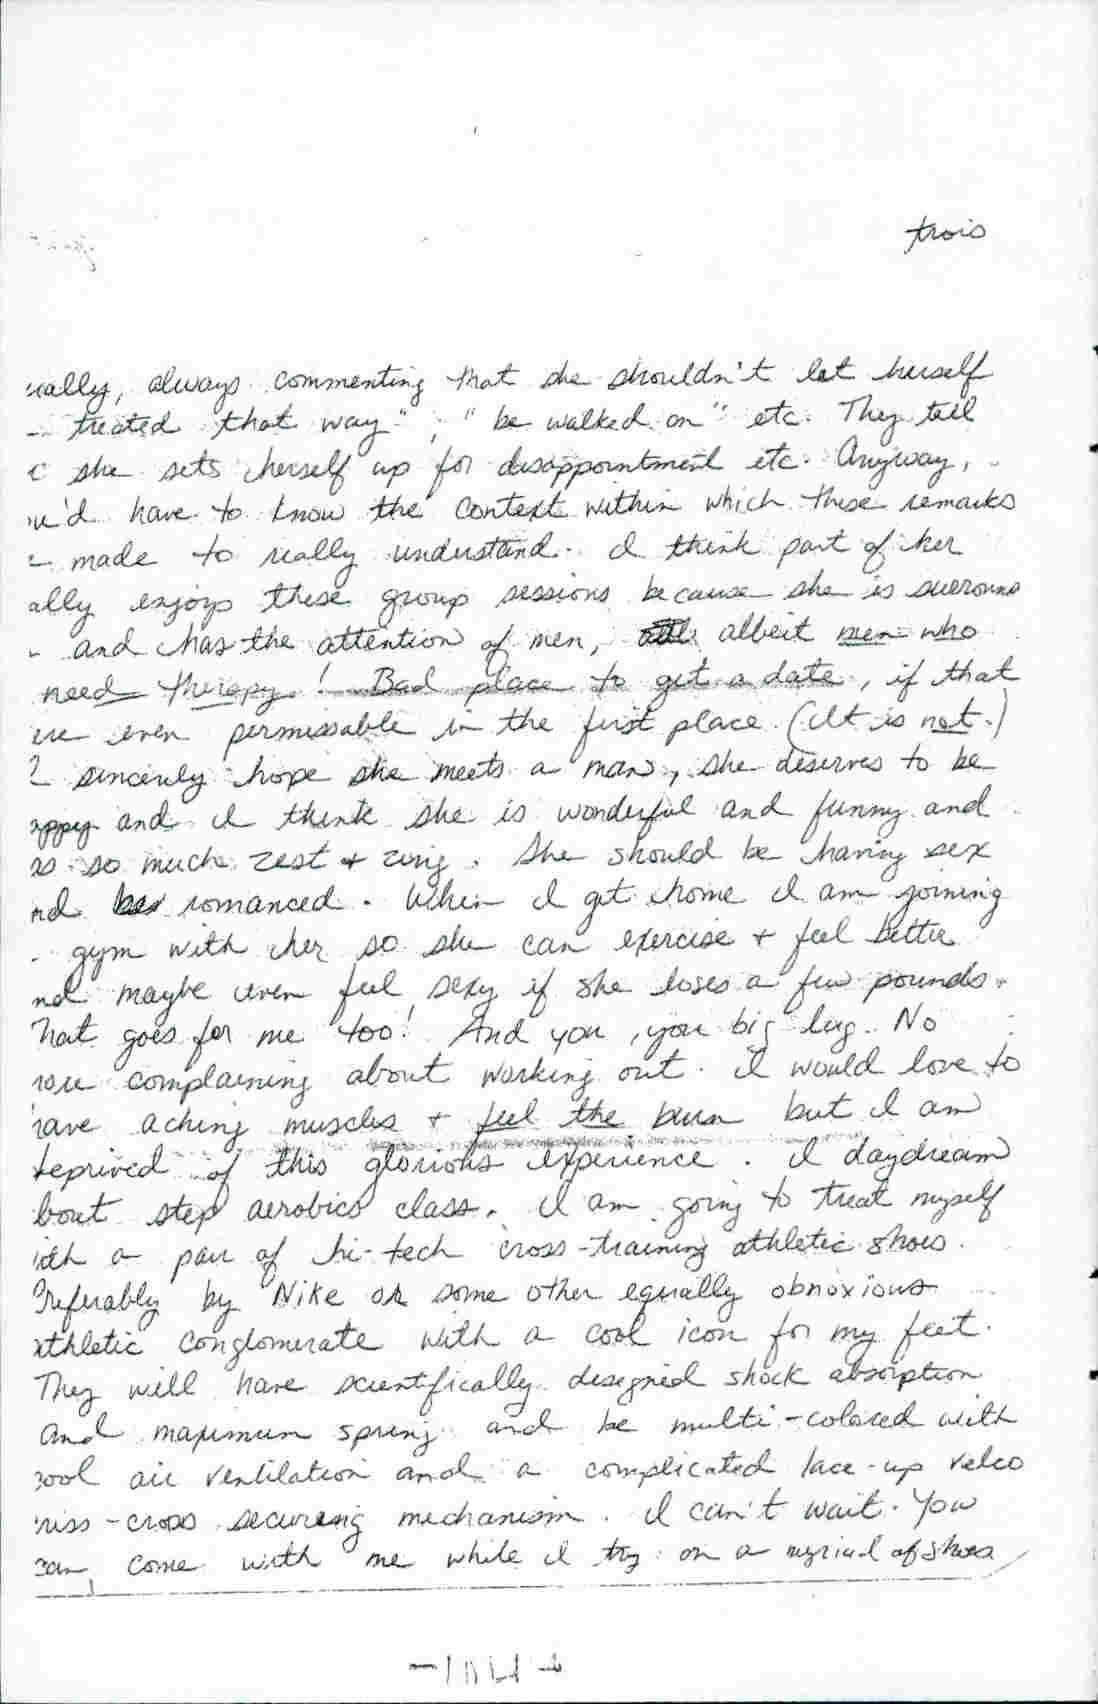 trois
ually, always commenting that she shouldn't let herself
treated that way", "be walked on" etc. They tell
she sets herself up for disappointment etc. Anyway,
u'd have to know the context within which these remarks
made to really understand. I think part of her
ally enjoys these group sessions because she is surroun
and has the attention of men, albeit men who
need therapy! Bad place to get a date, if that
ere even permissable in the first place. (It is not.)
I sincerely hope she meets a man, she deserves to be
appy and I think she is wonderful and funny and
as so much zest + zing. She should be having sex
nd romanced. When I get home I am joining
gym with her so she can exercise + feel better
nd maybe even feel sexy if she loses a few pounds.
That goes for me too! And you, you big lug. No
more complaining about working out. I would love to
have aching muscles + feel the burn but I am
deprived of this glorious experience. I daydream
bout step aerobics class. I am going to treat myself
ith a pair of hi-tech cross-training athletic shoes.
Preferably by Nike or some other equally obnoxious
athletic conglomerate with a cool icon for my feet.
They will have scientifically designed shock absorption
and maximum spring and be multi-colored with
cool air ventilation and a complicated lace-up velco
riss-cross securing mechanism. I can't wait. You
can come with me while I try on a myriad of shoes